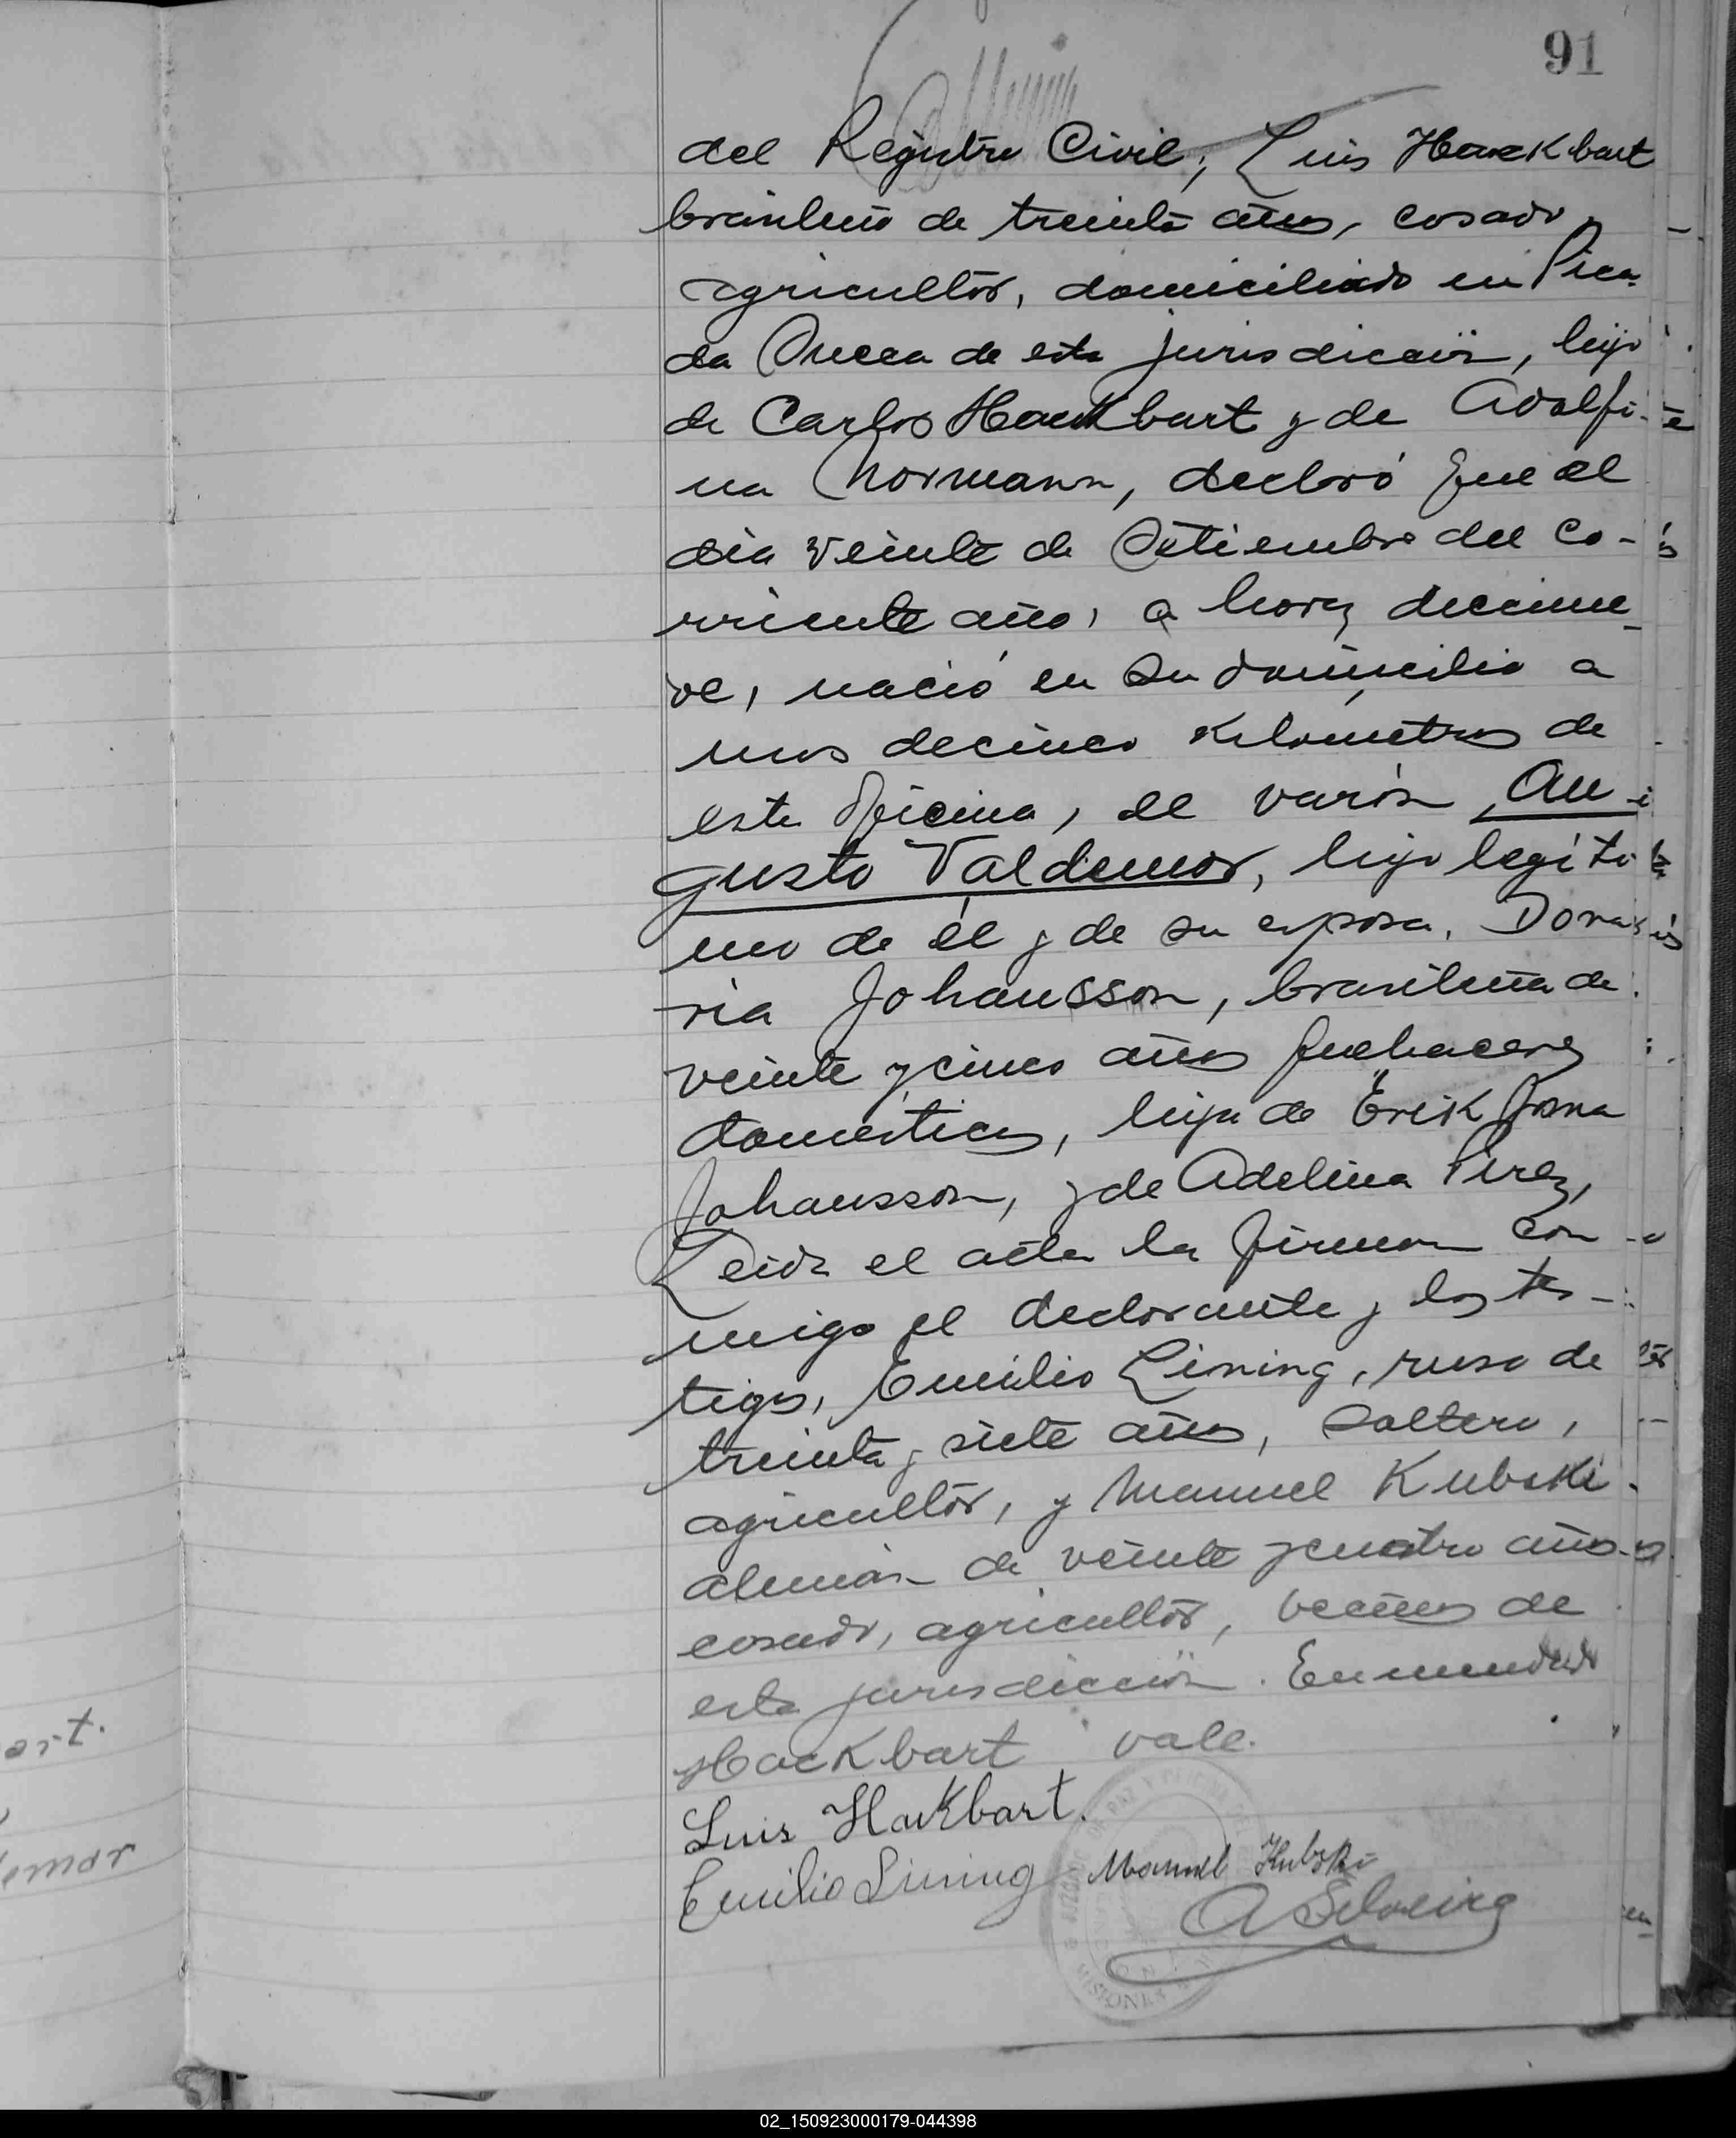 91
del Registro Civil, Luis Hackbart
brasileño de treinta años, casado,
agricultor, domiciliado en Pica-
da Sueca de esta jurisdicción, hijo
de Carlos Hackbart y de Adolfi-
na Normann, declaró que el
día veinte de Setiembre del co-
rriente año, a horas diecinue-
ve, nació en su domicilio a
unos decinco kilometros de
esta Oficina, el varón, Au-
gusto Valdemar, hijo legíti-
mo de él y de su esposa, Dona
ria Johansson, brasileña de
veinte y cinco años quehaceres
domésticos, hija de Erik Joma
Johansson, y de Adelina Pires,
Leida el acta la firman con
migo el declarante y los tes-
tigos, Emilio Lining, ruso de
treinta y siete años, soltero,
agricultor, y Manuel Kubski
alemán de veinte y cuatro años
casado, agricultor, vecinos de
esta jurisdicción. Enmendado
Hackbart vale.
Luis Hackbart.
Emilio Lining Manuel Kubski
A Silveira
art.
demar
MISIONES
02_150923000179-044398